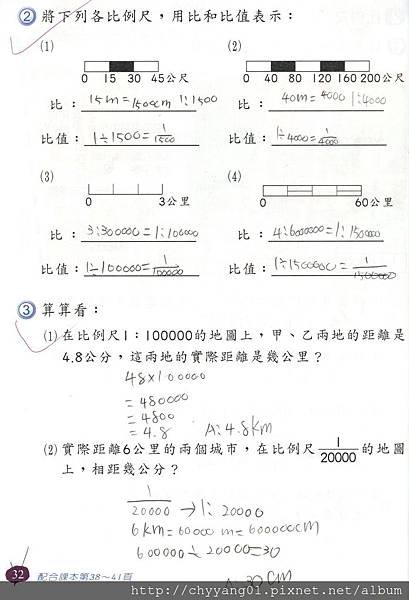 ② 將下列各比例尺，用比和比值表示：
(1) (2)
0 15 30 45公尺 0 40 80 120 160 200公尺
比： 15m=1500cm 1:1500 比： 40m=4000 1:4000
比值： 1÷1500=1/1500 比值： 1÷4000=1/4000
(3) (4)
0 3公里 0 60公里
比： 3:300000=1:100000 比： 4:6000000=1:1500000
比值： 1÷100000=1/100000 比值： 1÷1500000=1/1500000
③ 算算看：
(1) 在比例尺1：100000的地圖上，甲、乙兩地的距離是
4.8公分，這兩地的實際距離是幾公里？
4.8×100000
=480000
=4800
=4.8 A:4.8km
(2) 實際距離6公里的兩個城市，在比例尺1/20000的地圖
上，相距幾公分？
1/20000→1:20000
6km=6000m=600000cm
600000÷20000=30
A:30cm
32 配合課本第38～41頁
http://chyyang01.pixnet.net/album